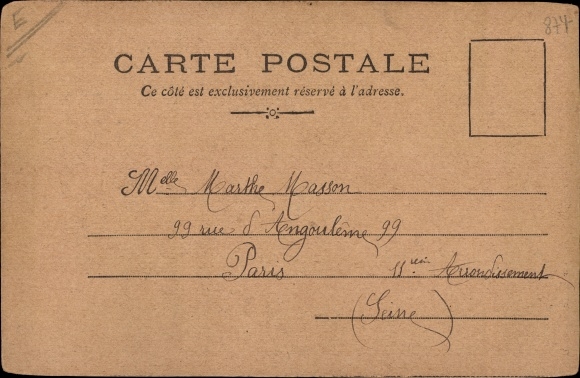 E
874
CARTE POSTALE
Ce côté est exclusivement réservé à l'adresse.
Melle Marthe Masson
99 rue d'Angoulême 99
Paris 11 Arrondissement
(Seine)